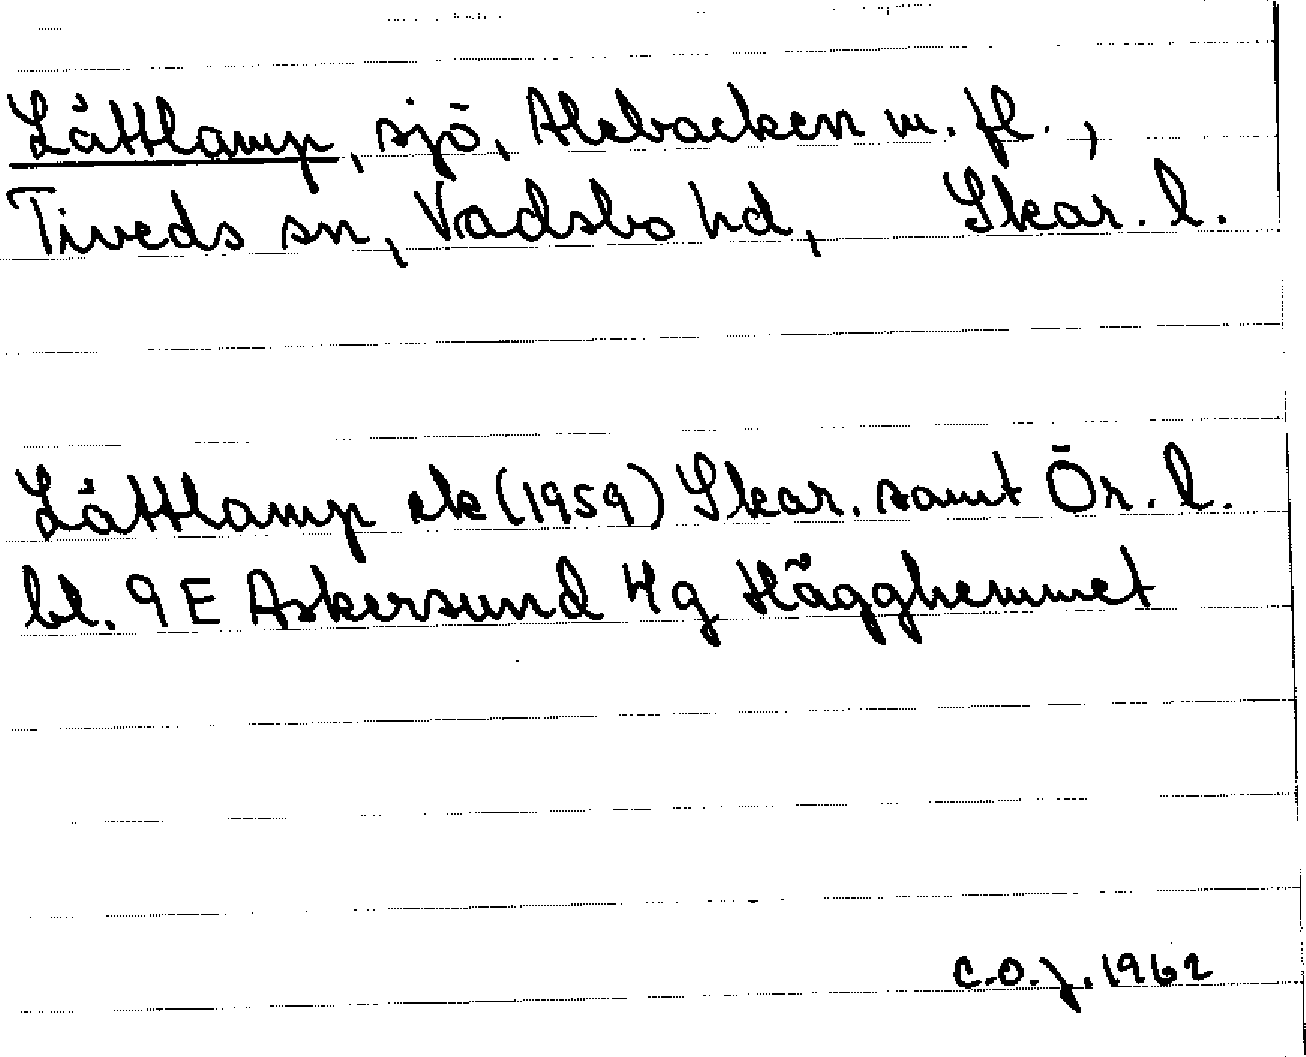 Låttlamp, sjö, Alebacken m. fl.,
Tiveds sn, Vadsbo hd, Skar. l.
Låttlamp ek (1959) Skar. samt Ör. l.
bl. 9E Askersund 4g Hägghemmet
C.O.J. 1962